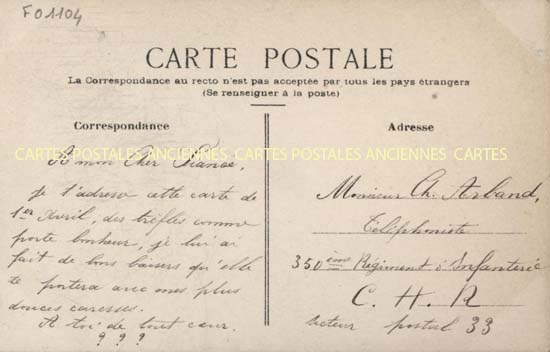 F01104
CARTE POSTALE
La Correspondance au recto n'est pas acceptée par tous les pays étrangers
(Se renseigner à la poste)
Correspondance
Adresse
CARTES POSTALES ANCIENNES CARTES POSTALES ANCIENNES CARTES
A mon Cher Fiancé,
je t'adresse cette carte de
1er Avril, des trèfles comme
porte bonheur, je lui ai
fait de bons baisers qu'elle
te portera avec mes plus
douces caresses.
A toi de tout cœur.
? ? ?
Monsieur Ch. Arband,
Téléphoniste
350ème Régiment d'Infanterie
C. H. R
secteur postal 33